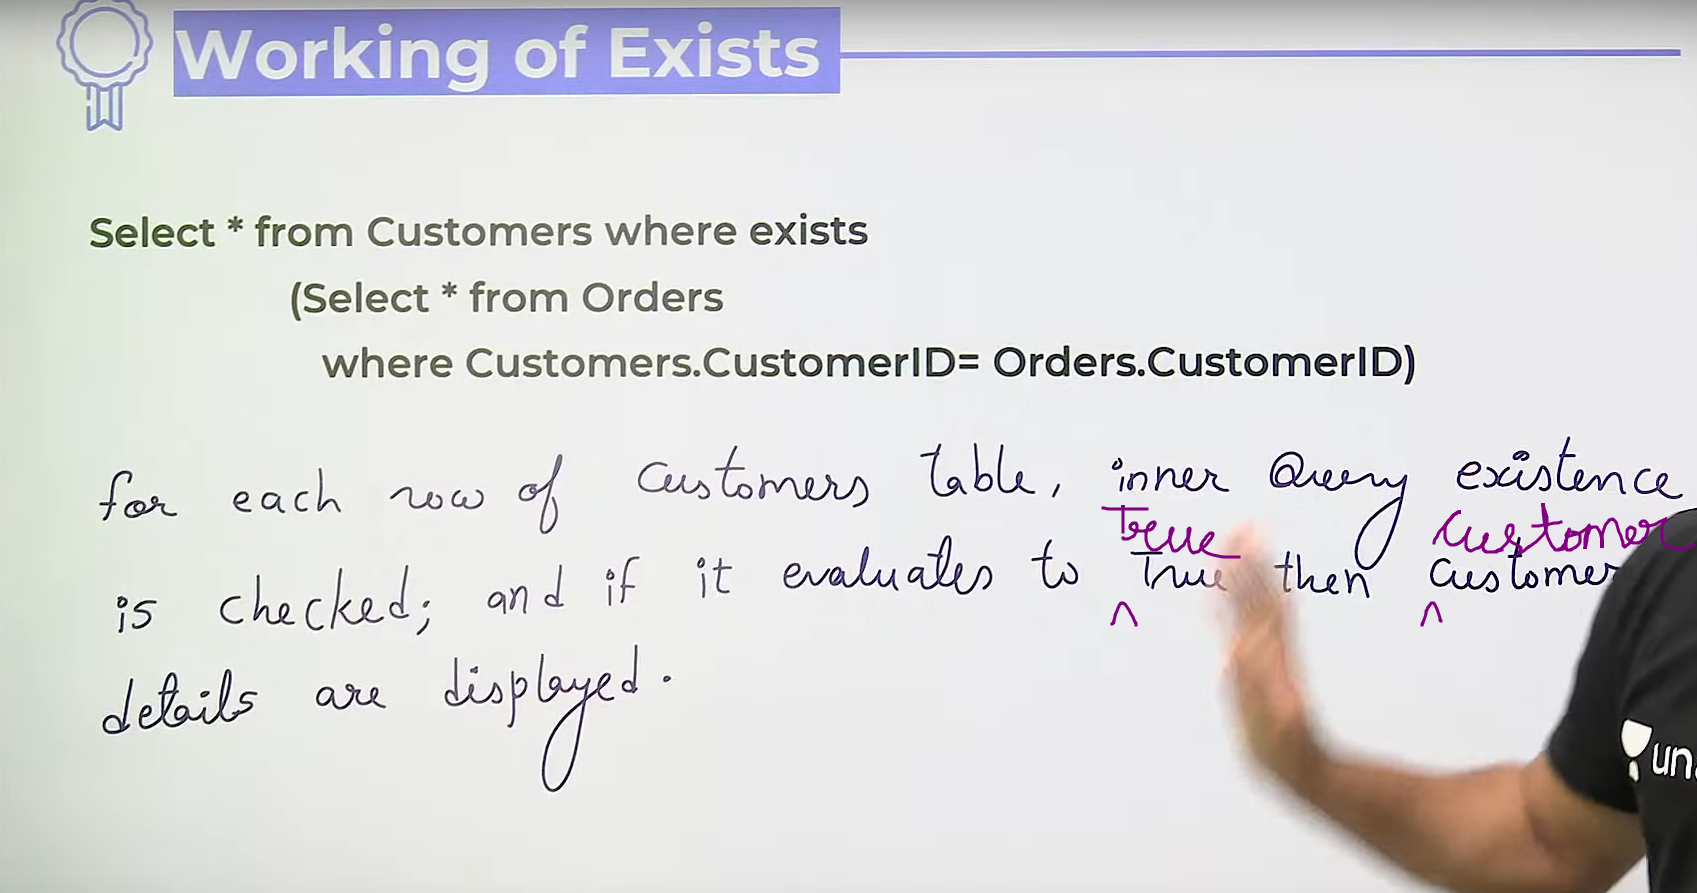 Working of Exists
Select * from Customers where exists
(Select * from Orders
where Customers.CustomerID= Orders.CustomerID)
for each row of Customers table, inner Query existence
True customer
is checked; and if it evaluates to True then Customer
^ ^
details are displayed.
un